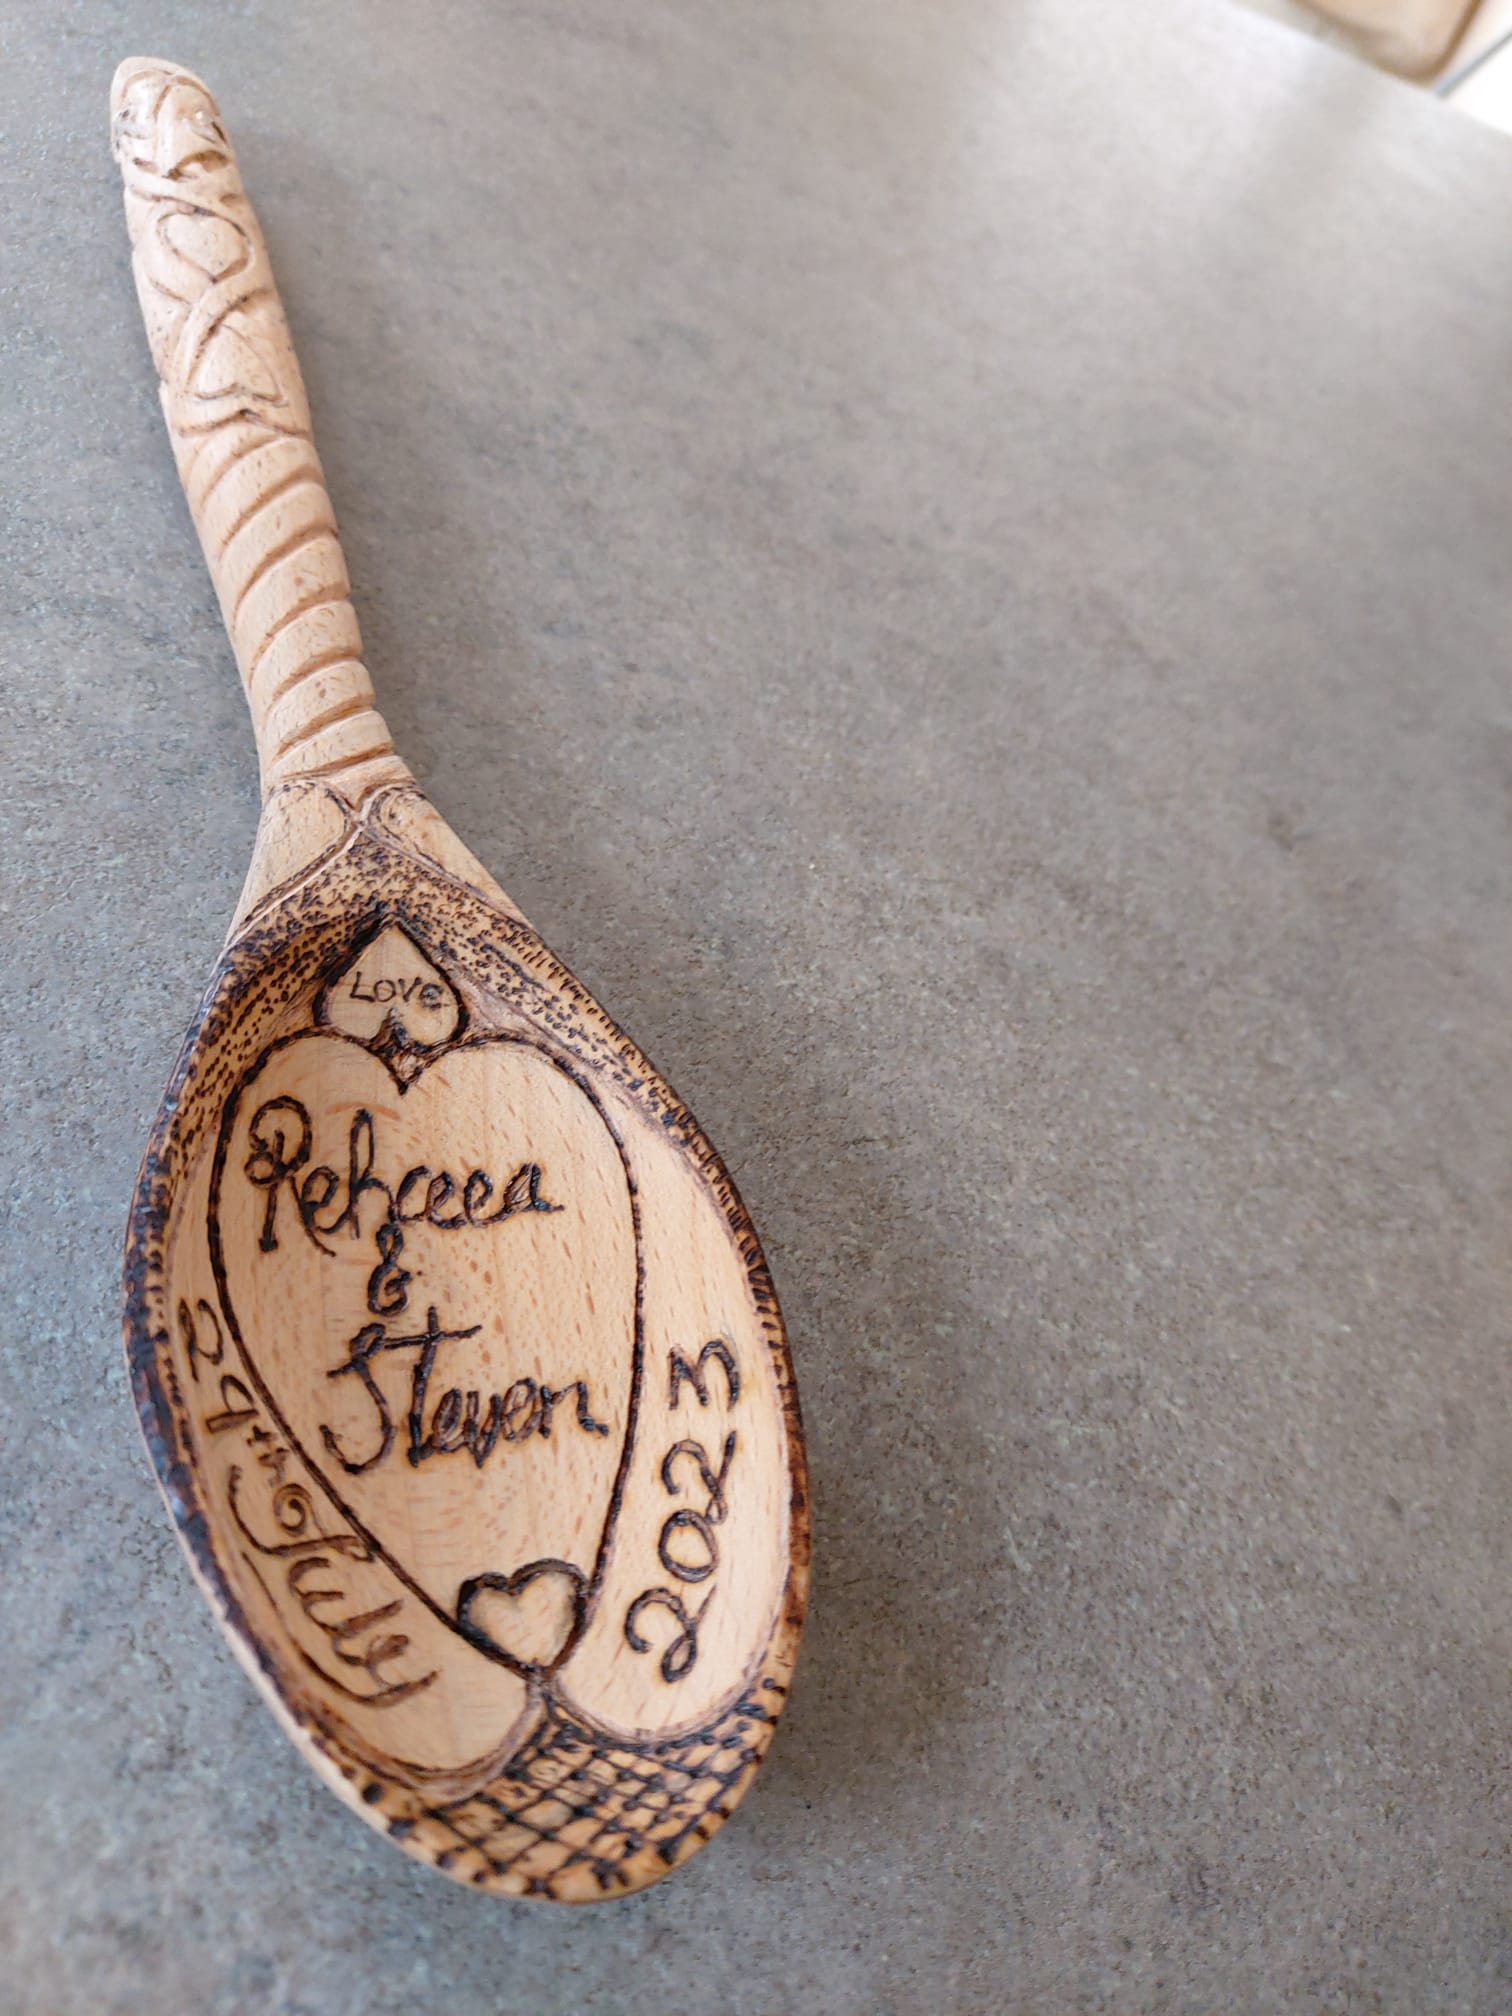 LOVE
Rebecca
&
Steven
29th July
2023